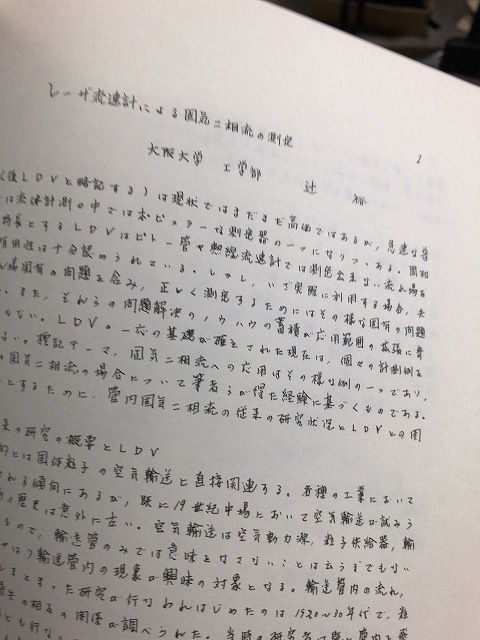 レーザ流速計による固気二相流の測定
1
大阪大学 工学部 辻 裕
以後LDVと略記する)は現状ではまだまだ高価ではあるが, 急速な普
は流体計測の中ではポピュラーな測定器の一つになりつつある。
特長とするLDVはピトー管や熱線流速計では測定出来ない流れ場を
有用性は十分認められている。しかし, いざ実際に利用する場合,
場固有の問題を含み, 正しく測定するためにはその様な固有の問題
ない。また, それらの問題解決のノウハウの蓄積が応用範囲の拡張に
LDVの一応の基礎が確立された現在は, 個々の計測例を
標記テーマ, 固気二相流への応用はその様な例の一つであり,
固気二相流の場合について筆者らが得た経験に基づくものである。
にするために, 管内固気二相流の従来の研究状況とLDVとの関
来の研究の概要とLDV
的には固体粒子の空気輸送に直接関連する。各種の工業において
れる傾向にあるが, 既に19世紀中場において空気輸送が試みら
歴史は意外に古い。空気輸送は空気動力源, 粒子供給器, 輸
もので, 輸送管のみでは意味をなさないことは云うまでもない
やはり輸送管内の現象が興味の対象となる。輸送管内の流れ,
まとまった研究が行なわれはじめたのは1920~30年代で,
の相互の関係が調べられた。当時の研究者